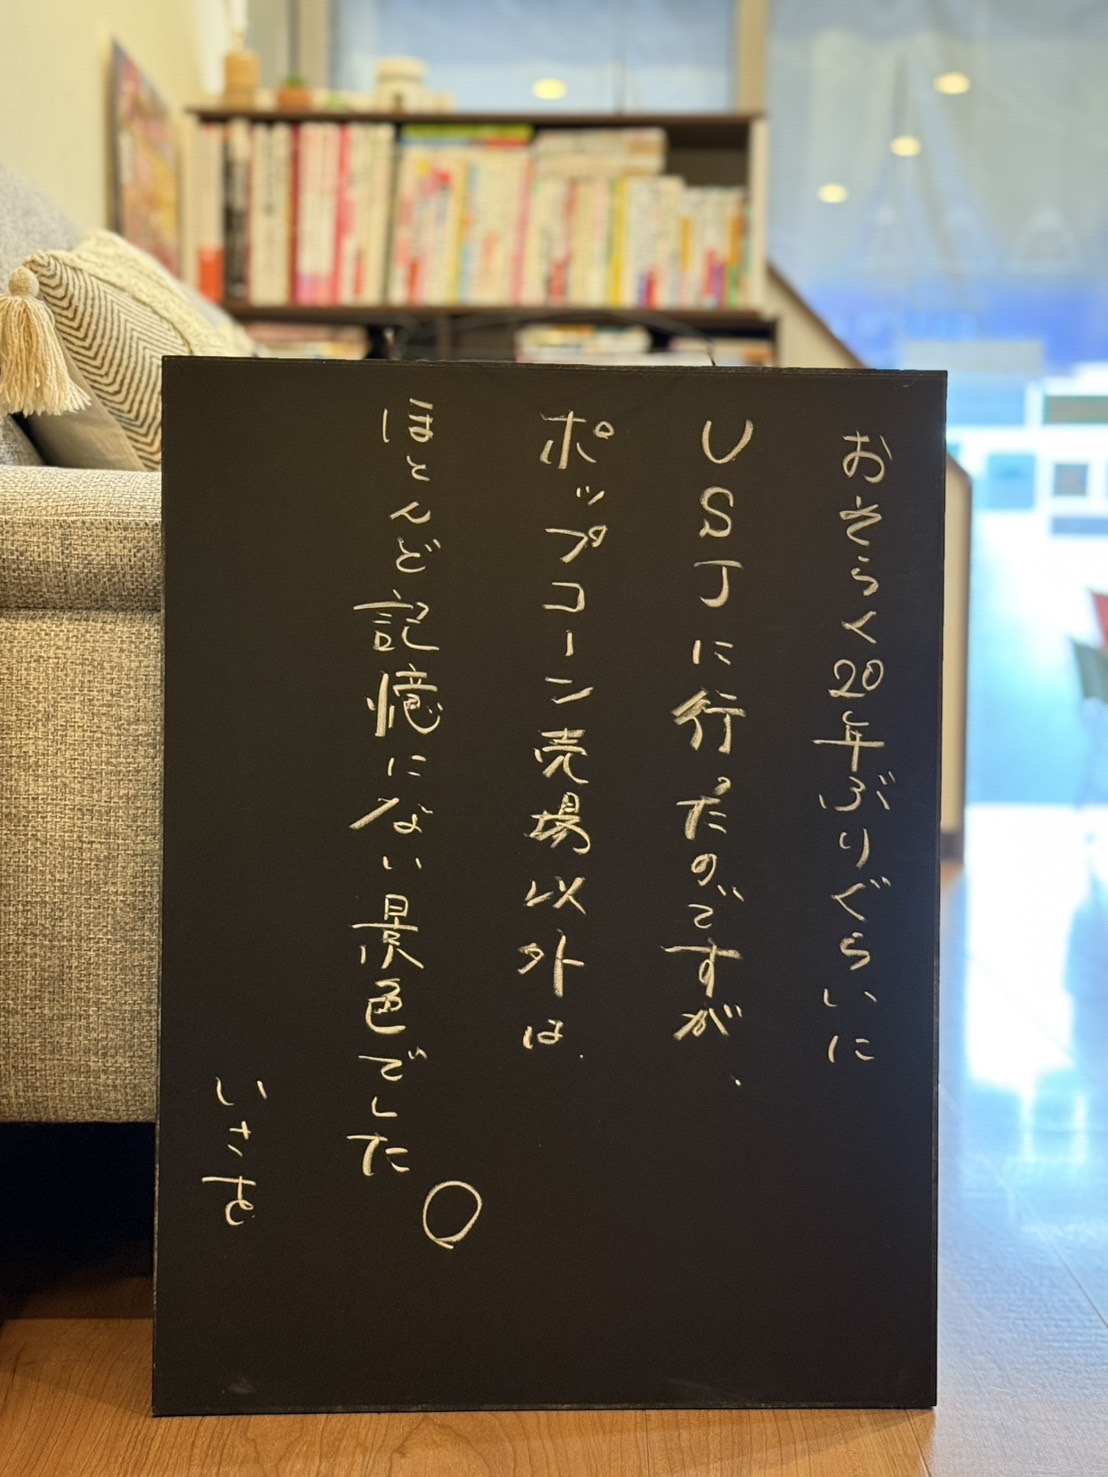 おそらく20年ぶりぐらいに
USJに行ったのですが、
ポップコーン売場以外は、
ほとんど記憶にない景色でした。
いさを